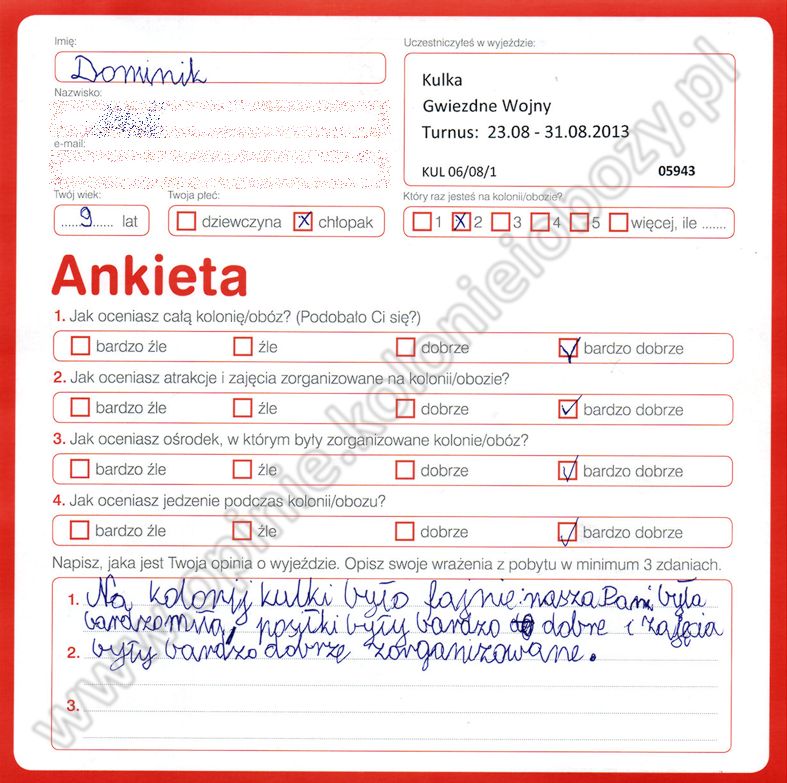 Imię:
Dominik
Uczestniczyłeś w wyjeździe:
Kulka
Gwiezdne Wojny
Turnus: 23.08 - 31.08.2013
KUL 06/08/1 05943
Nazwisko:
e-mail:
Twój wiek:
9 lat
Twoja płeć:
dziewczyna x chłopak
Który raz jesteś na kolonii/obozie?
1 x 2 3 4 5 więcej, ile .......
Ankieta
1. Jak oceniasz całą kolonię/obóz? (Podobało Ci się?)
bardzo źle źle dobrze ✓ bardzo dobrze
2. Jak oceniasz atrakcje i zajęcia zorganizowane na kolonii/obozie?
bardzo źle źle dobrze ✓ bardzo dobrze
3. Jak oceniasz ośrodek, w którym były zorganizowane kolonie/obóz?
bardzo źle źle dobrze ✓ bardzo dobrze
4. Jak oceniasz jedzenie podczas kolonii/obozu?
bardzo źle źle dobrze ✓ bardzo dobrze
Napisz, jaka jest Twoja opinia o wyjeździe. Opisz swoje wrażenia z pobytu w minimum 3 zdaniach.
1. Na kolonij kulki było fajnie: nasza Pani była
bardzo miła, posiłki były bardzo dobre i zajęcia
2. były bardzo dobrze zorganizowane.
3.
www.opinie.kolonieiobozy.pl